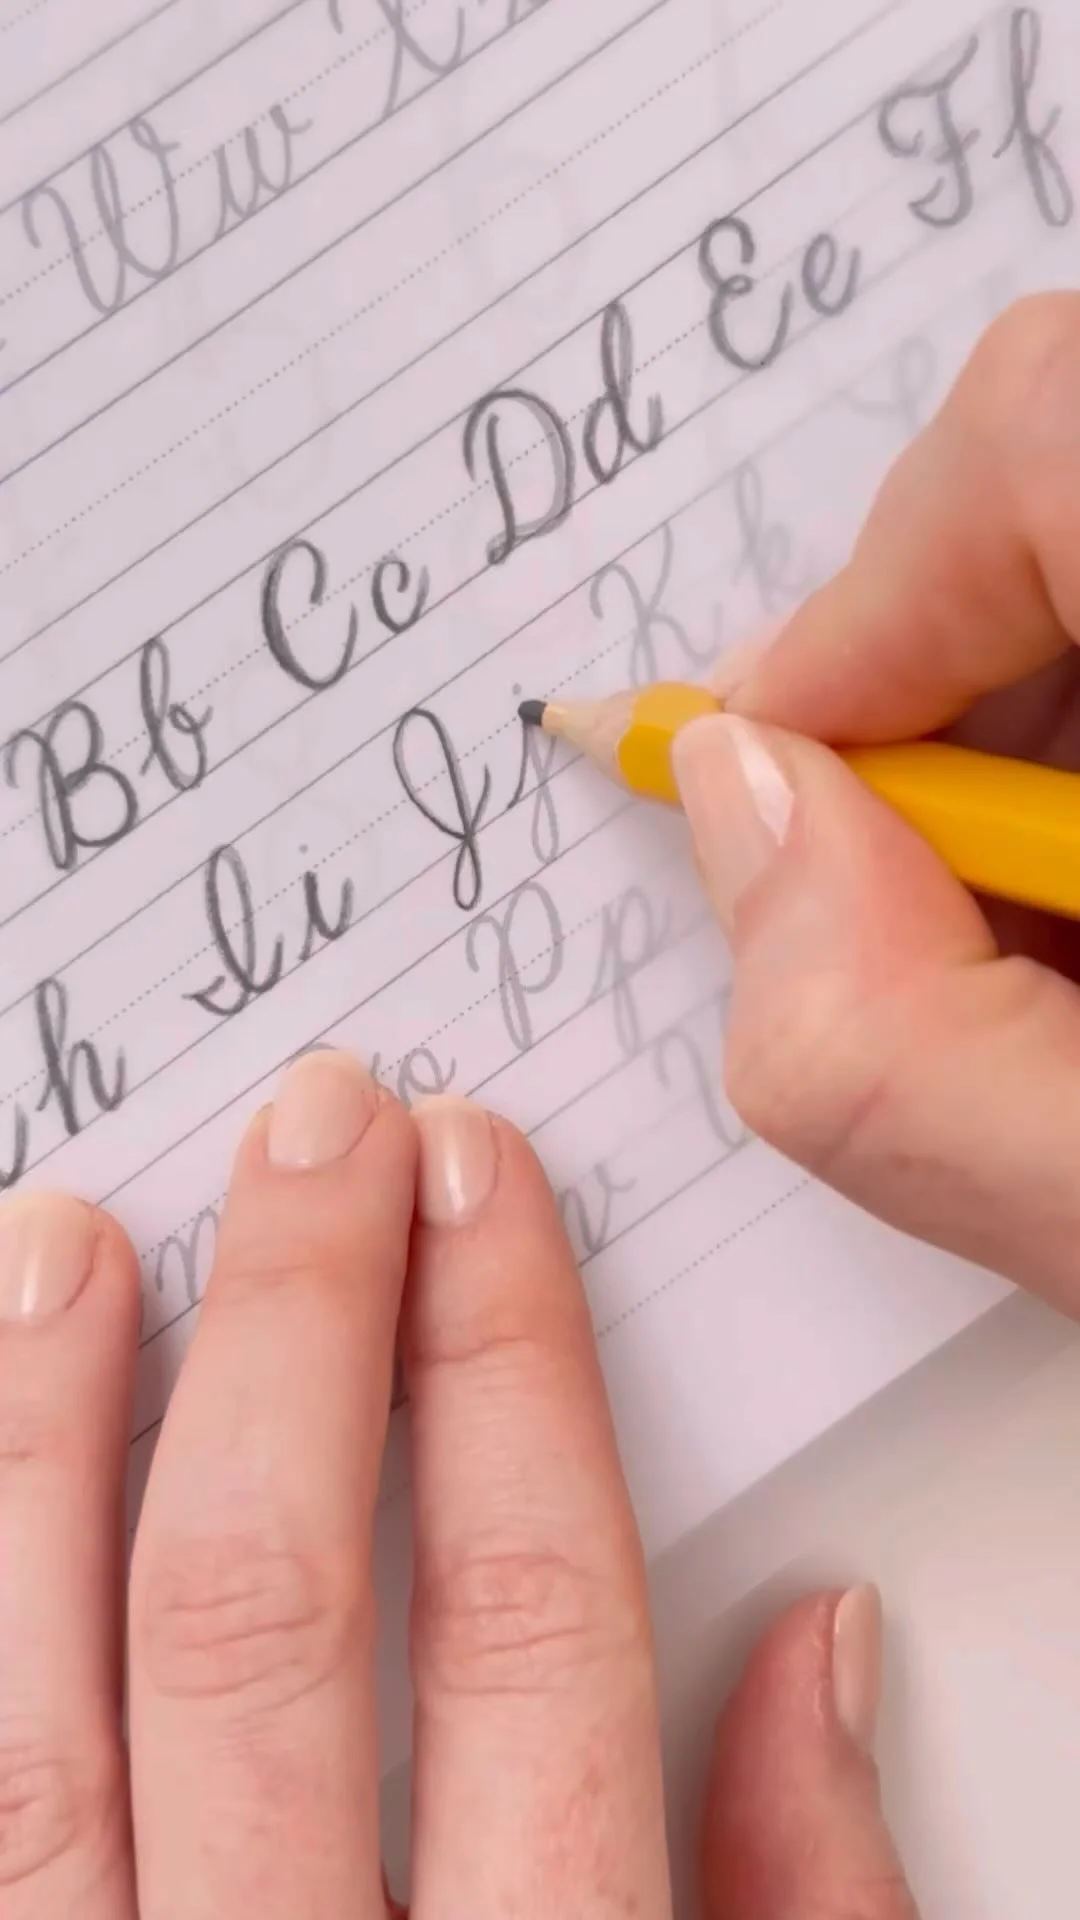 Ww
Bb Cc Dd Ee Ff
h Ii Jj Kk
o Pp